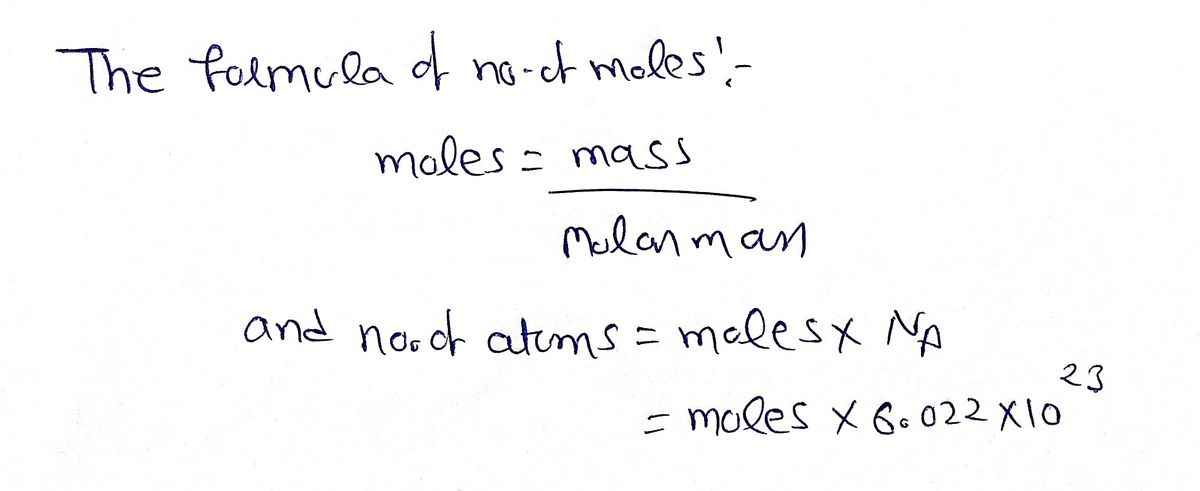 The formula of no. of moles:-
moles = mass
molar mass
and no. of atoms = moles x NA
= moles x 6.022 x 10^23